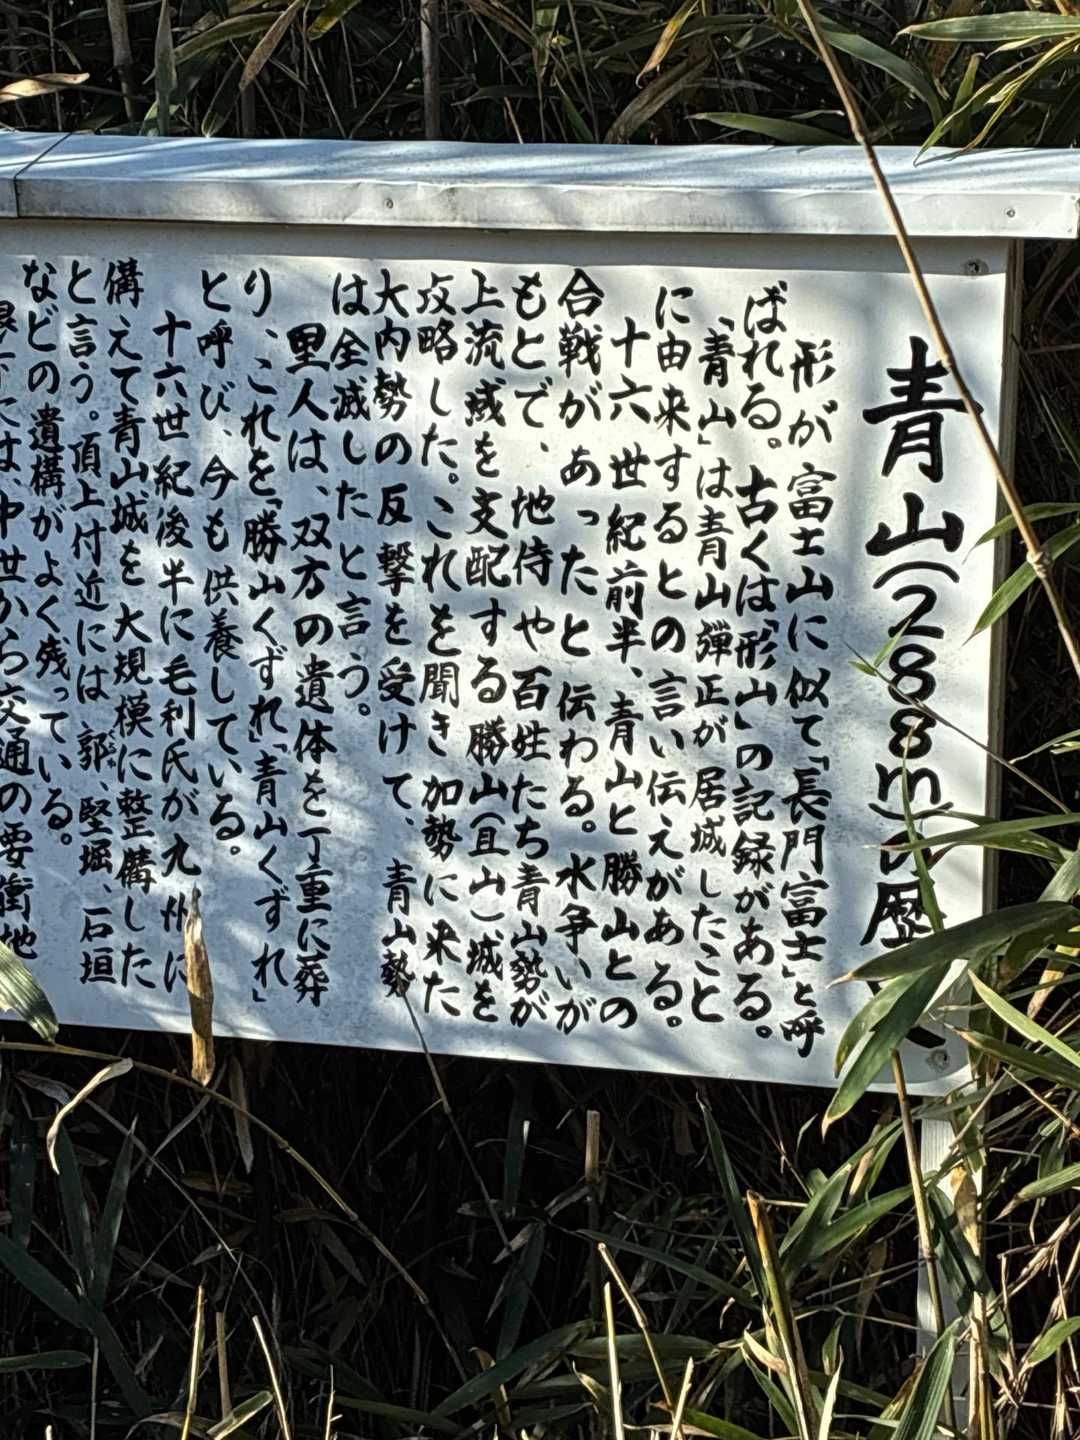 青山(288m)の歴
形が富士山に似て「長門富士」と呼
ばれる。古くは「形山」の記録がある。
「青山」は青山弾正が居城したこと
に由来するとの言い伝えがある。
十六世紀前半、青山と勝山との
合戦があったと伝わる。水争いが
もとで、地侍や百姓たち青山勢が
上流域を支配する勝山(且山)城を
攻略した。これを聞き加勢に来た
大内勢の反撃を受けて、青山勢
は全滅したと言う。
里人は、双方の遺体を丁重に葬
り、これを「勝山くずれ」「青山くずれ」
と呼び、今も供養している。
十六世紀後半に毛利氏が九州に
備えて青山城を大規模に整備した
と言う。頂上付近には郭、堅堀、石垣
などの遺構がよく残っている。
には、中世から交通の要衝地